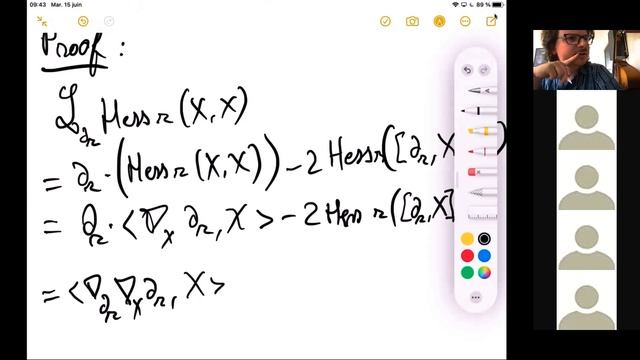 09:43 Mar. 15 juin
89 %
Proof :
ℒ_∂r Hess r (X, X)
= ∂r · (Hess r (X, X)) – 2 Hess r ([∂r, X
= ∂r · <∇_X ∂r, X> – 2 Hess r ([∂r, X]
= <∇_∂r ∇_X ∂r, X>